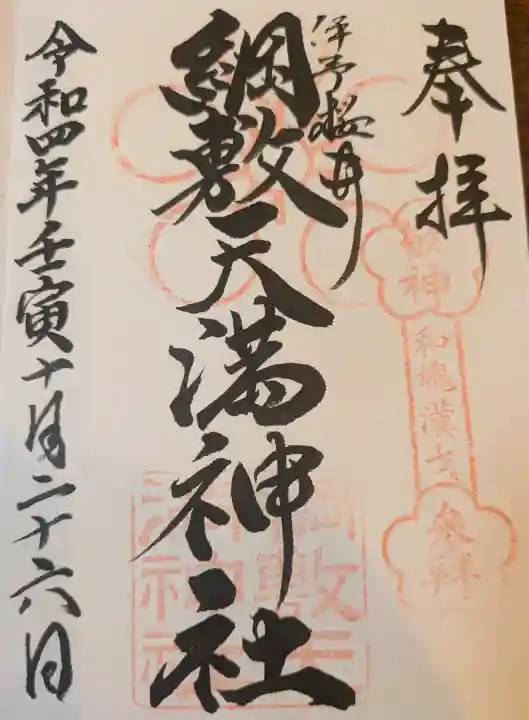 奉拝
伊予桜井
綱敷天満神社
令和四年壬寅十月二十六日
神
和魂漢才
参拝
綱敷天
満神社